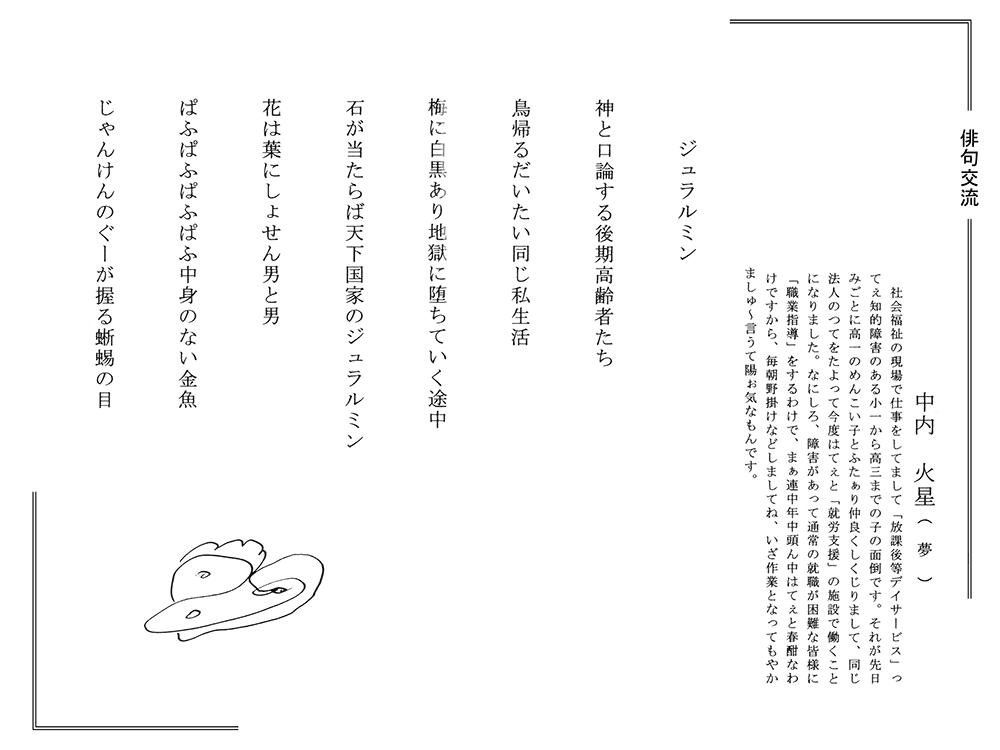 俳句交流
中内　火星（　夢　）
　社会福祉の現場で仕事をしてまして「放課後等デイサービス」っ
てぇ知的障害のある小一から高三までの子の面倒です。それが先日
みごとに高一のめんこい子とふたぁり仲良くしくじりまして、同じ
法人のつてをたよって今度はてぇと「就労支援」の施設で働くこと
になりました。なにしろ、障害があって通常の就職が困難な皆様に
「職業指導」をするわけで、まぁ連中年中頭ん中はてぇと春酣なわ
けですから、毎朝野掛けなどしましてね、いざ作業となってもやか
ましゅ～言うて陽ぉ気なもんです。
ジュラルミン
神と口論する後期高齢者たち
鳥帰るだいたい同じ私生活
梅に白黒あり地獄に堕ちていく途中
石が当たらば天下国家のジュラルミン
花は葉にしょせん男と男
ぱふぱふぱふぱふ中身のない金魚
じゃんけんのぐーが握る蜥蜴の目